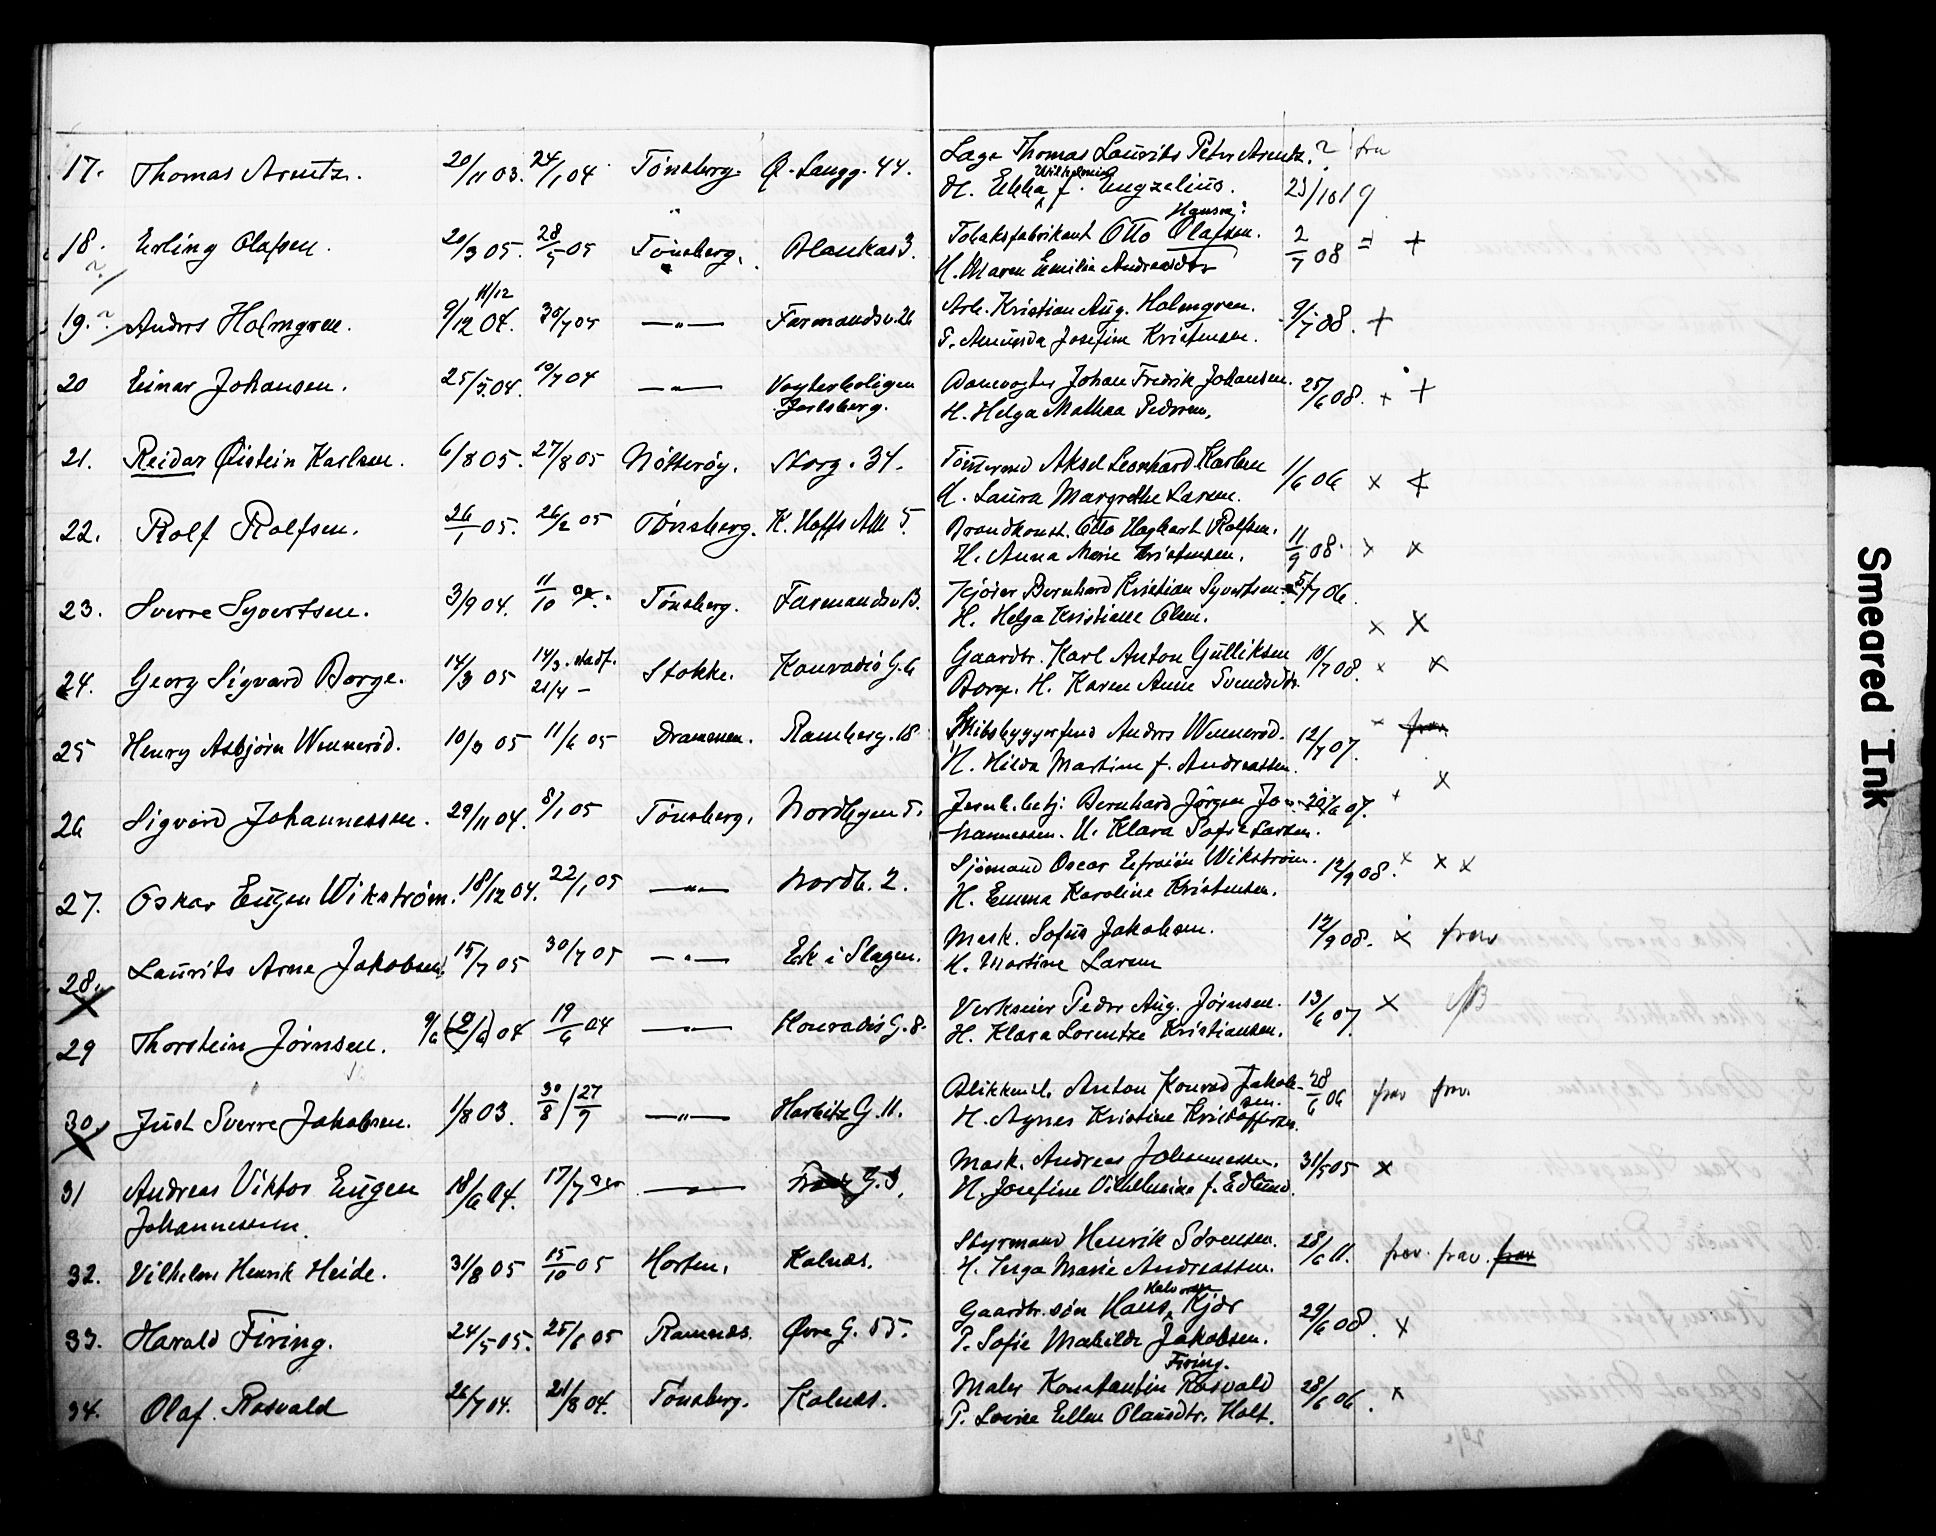 17. Thomas Arentz. 20/11 03. 24/1 04 Tönsberg. Ø. Langg. 44. Læge Thomas Laurits Peter Arentz. ? frav
H. Ebba Wilhelmine f. Engzelius. 23/10 19
18. Erling Olafsen. 20/3 05. 28/5 05 Tönsberg. Blankas 3. Tobaksfabrikant Otto Hansej: Olafsen. 2/7 08 +
H. Maren Emilie Andreasdtr
19. ? Anders Holmgren. 9/12 04. 11/12 30/7 05 —"— Farmandsv. 26 Arb. Kristian Aug. Holmgren. 9/7 08. +
P. Amunda Josefine Kristensen.
20 Einar Johansen. 25/5 04. 10/7 04 —"— Vogterboligen Banevogter Johan Fredrik Johansen. 25/6 08. + +
Jarlsberg. H. Helga Mathea Pedersen.
21. Reidar Øistein Karlsen. 6/8 05. 27/8 05 Nötterøy. Storg. 34. Tömmermd Aksel Leonhard Karlsen 1/6 06 x +
H. Laura Margrethe Larsen.
22. Rolf Rolfsen. 26/1 05. 26/2 05 Tönsberg. K. Hoffs All 5. Brandkonst. Otto Hagbart Rolfsen. 11/9 08. x x
H. Anna Marie Kristensen.
23. Sverre Syvertsen. 3/9 04. 11/10 04. Tönsberg. Farmandsv. 13. Kjører Bernhard Kristian Syvertsen. 5/7 06.
H. Helga Kristiane Olsen. x x
24. Georg Sigvard Borge. 14/3 05 14/3. stadf. Stokke. Konradis G. 6 Gaardbr. Karl Anton Gulliksen 10/7 08. x x
21/4 — Borge. H. Karen Anne Svendsdtr.
25 Henry Asbjörn Wennerød. 10/3 05 11/6 05 Drammen. Ramberg. 18 Skibsbyggerfmd Anders Wennerød. 12/7 07. x frav
H. Hilda Martine f. Andreassen.
26 Sigvard Johannessen. 29/11 04. 8/1 05 Tönsberg. Nordbyen 5. Jernb. betj: Bernhard Jørgen Jo- 20/6 07. + x
hannessen. H. Klara Sofie Larsen.
27. Oskar Eugen Wikström. 18/12 04. 22/1 05 —"— Nordb. 2. Sjömand Oscar Efraim Wikström. 12/9 08. x x x
H. Emma Karoline Kristensen.
28. X Laurits Arne Jakobsen. 15/7 05 30/7 05 —"— Ek i Slagen. Mask. Sofus Jakobsen. 12/9 08. x frav
H. Martine Larsen
29 Thorstein Jörnsen. 9/6 (9/6) 04 19/6 04 —"— Konradis G. 8. Verkseier Peder Aug. Jörnsen. 13/6 07. x
H. Klara Lorentze Kristiansen.
30. X Just Sverre Jakobsen. 1/8 03. 30/8 | 27/9 —"— Harbitz G. 11. Blikkensl. Anton Konrad Jakob- 28/6 06 frav frav.
sen. H. Agnes Kristine Kristoffersen.
31 Andreas Viktor Eugen 18/6 04. 17/7 04 —"— G. 3. Mask. Andreas Johannessen. 31/5 05 x
Johannessen. H. Josefine Vilhelmine f. Edlund.
32. Vilhelm Henrik Heide. 31/8 05 15/10 05 Horten. Kalnæs. Styrmand Henrik Sörensen. 28/6 11. frav. frav. frav
H. Inga Marie Andreassen.
33. Harald Firing. 24/5 05. 25/6 05 Ramnes. Øvre G. 55. Gaardbr. søn Hans Halvorsen Kjær 29/6 08. x
P. Sofie Mathilde Jakobsen.
Firing.
34. Olaf Rosvald 26/7 04. 21/8 04. Tönsberg. Kalnæs. Maler Konstantin Rosvald 28/6 06. x
P. Lovise Ellen Olausdtr. Holt.
Smeared Ink